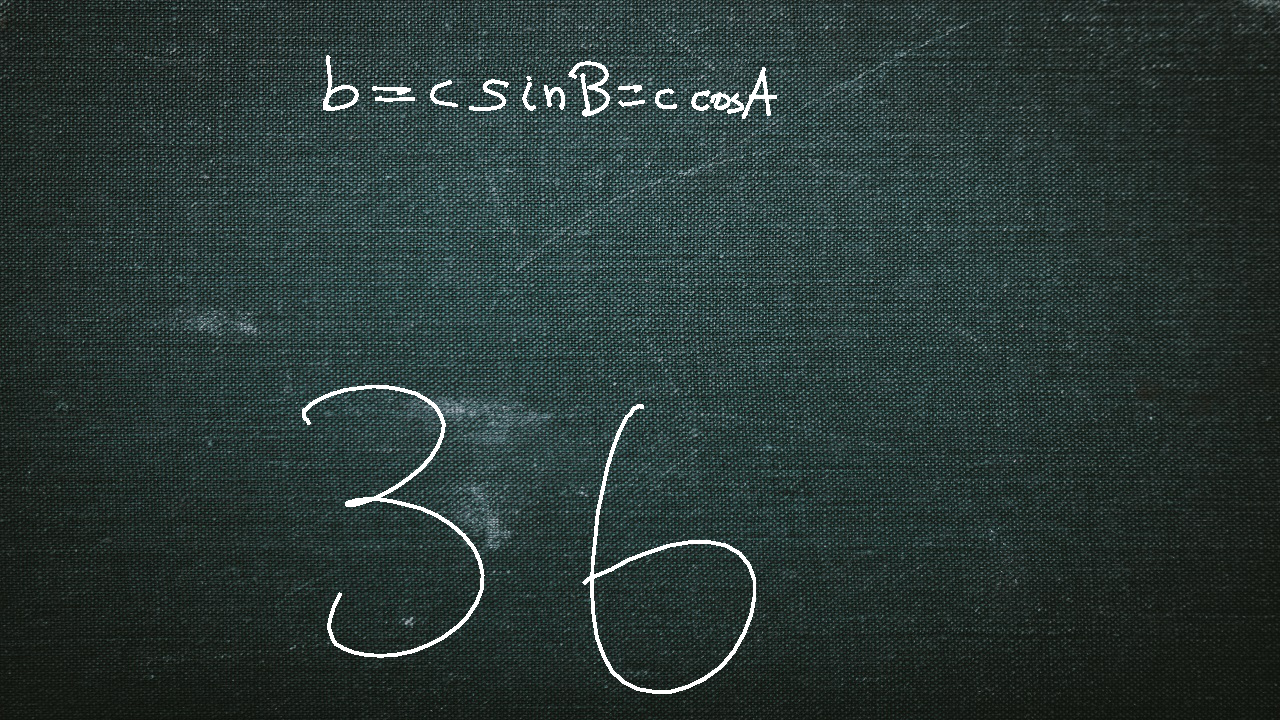 b = c sin B = c cos A
36